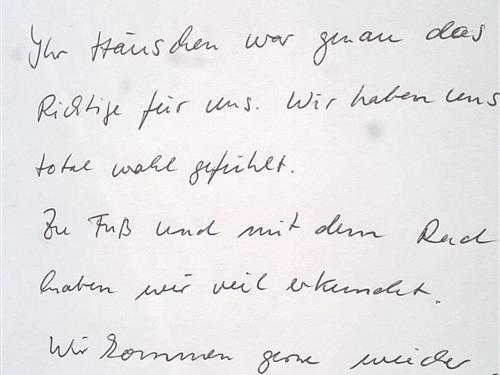 Ihr Häuschen war genau das
Richtige für uns. Wir haben uns
total wohl gefühlt.
Zu Fuß und mit dem Rad
haben wir veil erkundet.
Wir kommen gerne wieder